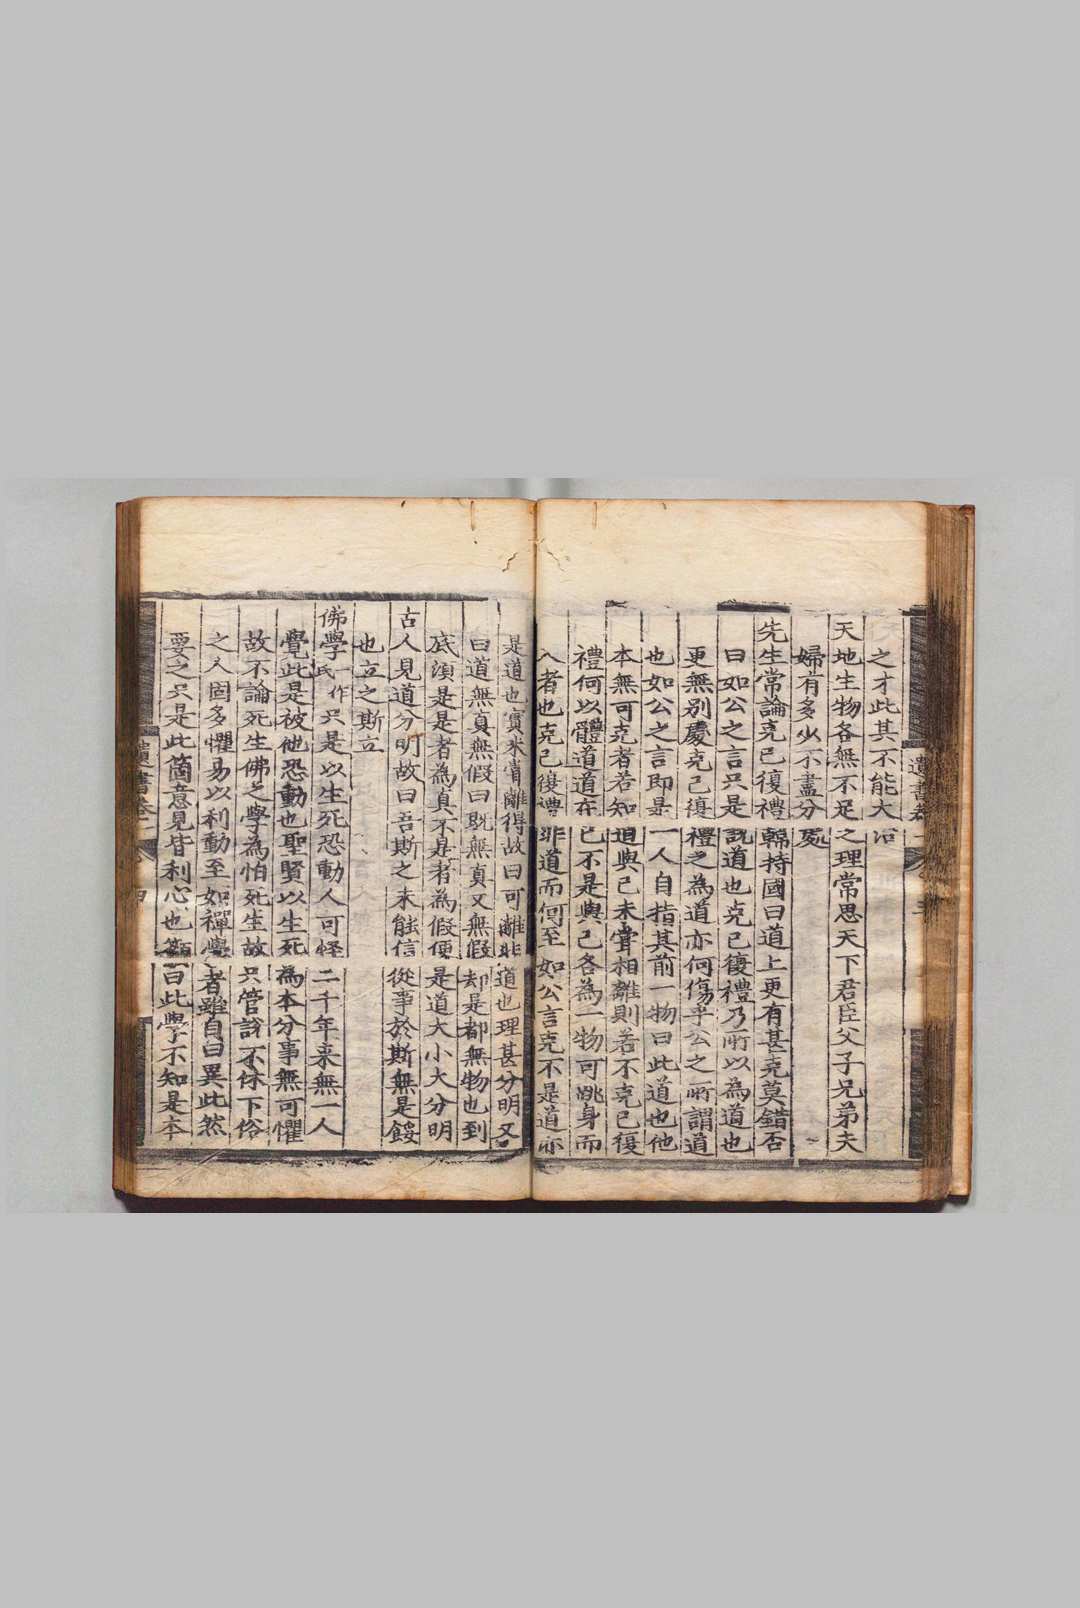 遺書卷一
之才此其不能大治
天地生物各無不足之理常思天下君臣父子兄弟夫
婦有多少不盡分處
先生常論克己復禮韓持國曰道上更有甚克莫錯否
曰如公之言只是說道也克己復禮乃所以為道也
更無別處克己復禮之為道亦何傷乎公之所謂道
也如公之言即是一人自指其前一物曰此道也他
本無可克者若知道與己未甞相離則若不克己復
禮何以體道道在已不是與己各為一物可跳身而
入者也克己復禮非道而何至如公言克不是道亦
是道也實未甞離得故曰可離非道也理甚分明又
曰道無真無假曰既無真又無假却是都無物也到
底湏是是者為真不是者為假便是道大小大分明
古人見道分明故曰吾斯之未能信從事於斯無是餒
也立之斯立
佛學一作氏只是以生死恐動人可怪二千年来無一人
覺此是被他恐動也聖賢以生死為本分事無可懼
故不論死生佛之學為怕死生故只管說不休下俗
之人固多懼易以利動至如禪學者雖自曰異此然
要之只是此箇意見皆利心也籲曰此學不知是本
遺書卷一 四